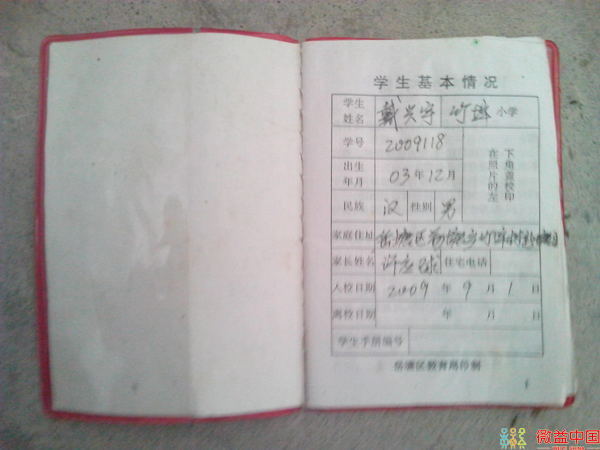 学生基本情况
学生姓名 戴兴宇 竹埠小学
学号 2009118
在照片的左下角盖校印
出生年月 03年12月
民族 汉 性别 男
家庭住址 岳塘区
家长姓名 住宅电话
入校日期 2009 年 9 月 1 日
离校日期 年 月 日
学生手册编号
岳塘区教育局印制
微益中国